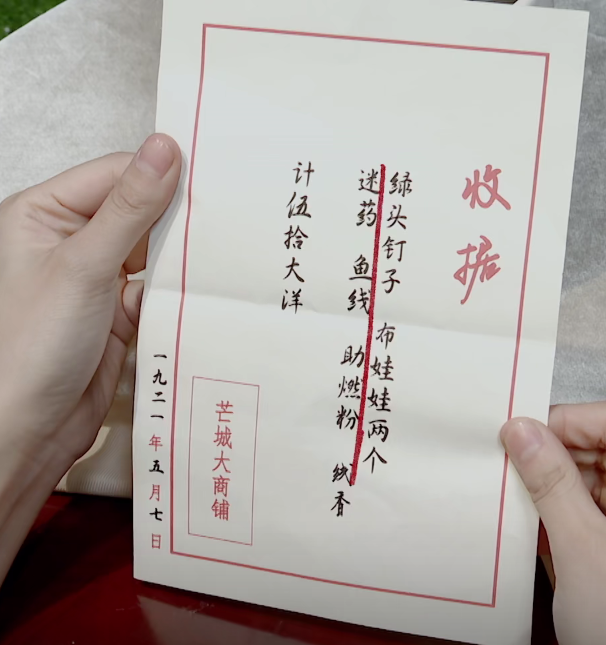 收据
绿头钉子 布娃娃两个
迷药 鱼线 助燃粉 线香
计伍拾大洋
芒城大商铺
一九二一年五月七日